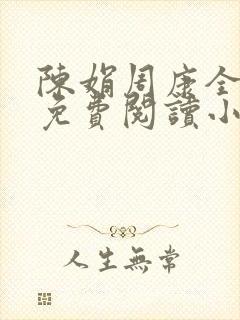 陳娟周康全
免費閱讀小
人生無常